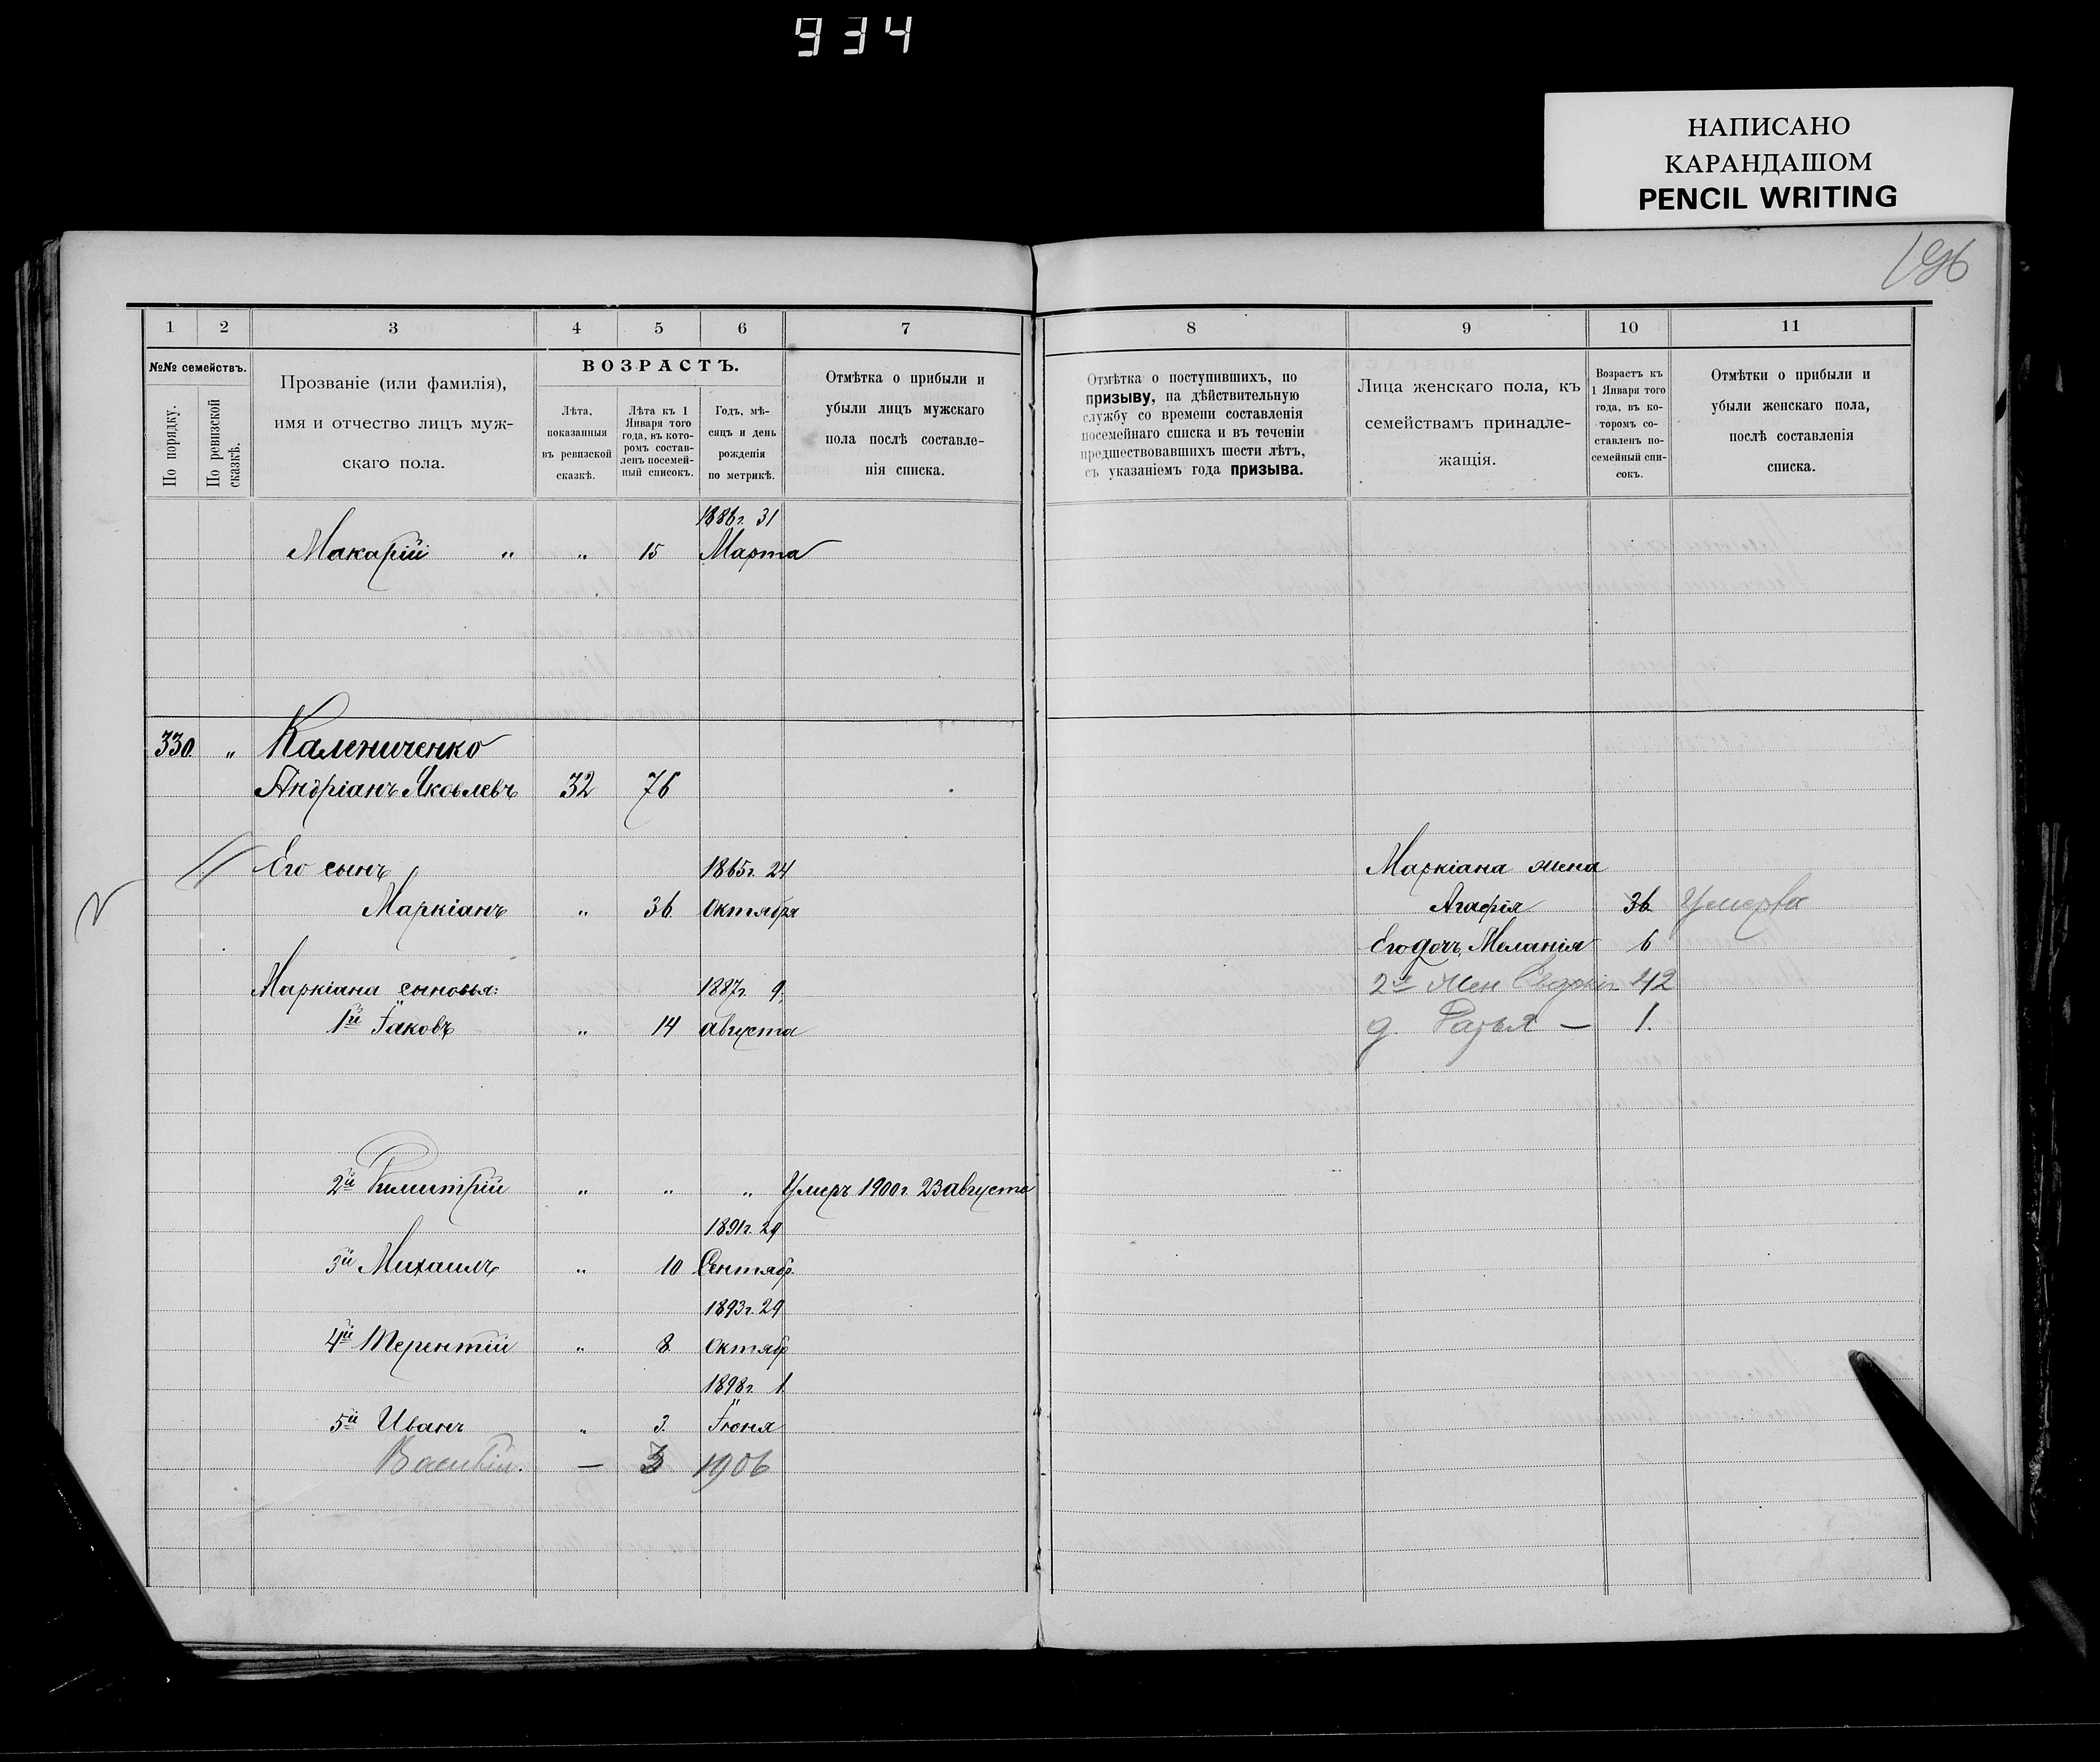 934
НАПИСАНО
КАРАНДАШОМ
PENCIL WRITING
196
1 2 3 4 5 6 7 8 9 10 11
№№ семействъ.
По порядку.
По ревизской сказкѣ.
Прозваніе (или фамилія),
имя и отчество лицъ муж-
скаго пола.
ВОЗРАСТЪ.
Лѣта,
показанныя
въ ревизской
сказкѣ.
Лѣта къ 1
Января того
года, въ кото-
ромъ состав-
ленъ посемей-
ный списокъ.
Годъ, мѣ-
сяцъ и день
рожденія
по метрикѣ.
Отмѣтка о прибыли и
убыли лицъ мужскаго
пола послѣ составле-
нія списка.
Отмѣтка о поступившихъ, по
призыву, на дѣйствительную
службу со времени составленія
посемейнаго списка и въ теченіи
предшествовавшихъ шести лѣтъ,
съ указаніемъ года призыва.
Лица женскаго пола, къ
семействамъ принадле-
жащія.
Возрастъ къ
1 Января того
года, въ ко-
торомъ со-
ставленъ по-
семейный спи-
сокъ.
Отмѣтки о прибыли и
убыли женскаго пола,
послѣ составленія
списка.
1886г. 31
Макарій " " 15 Марта
330. " Калениченко
Андріанъ Яковлевъ 32 76
Его сынъ 1865г. 24 Маркіана жена
Маркіанъ " 36. Октября Агафія 36. Умерла
Его дочь Меланія 6
Маркіана сыновья: 1887г. 9. 2я жен 42
1й Іаковъ " 14 августа д. — 1.
2й Димитрій " " " Умеръ 1900г. 23 августа
1891г. 29
3й Михаилъ " 10 Сентябр.
1893г. 29
4й Терентій " 8. Октябр
1898г. 1
5й Иванъ " 3. Іюня
Василій. — 3 1906